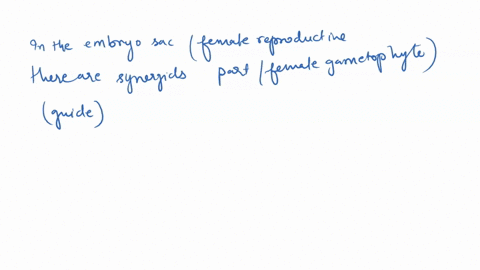 In the embryo sac (female reproductive
there are synergids part / female gametophyte)
(guide)